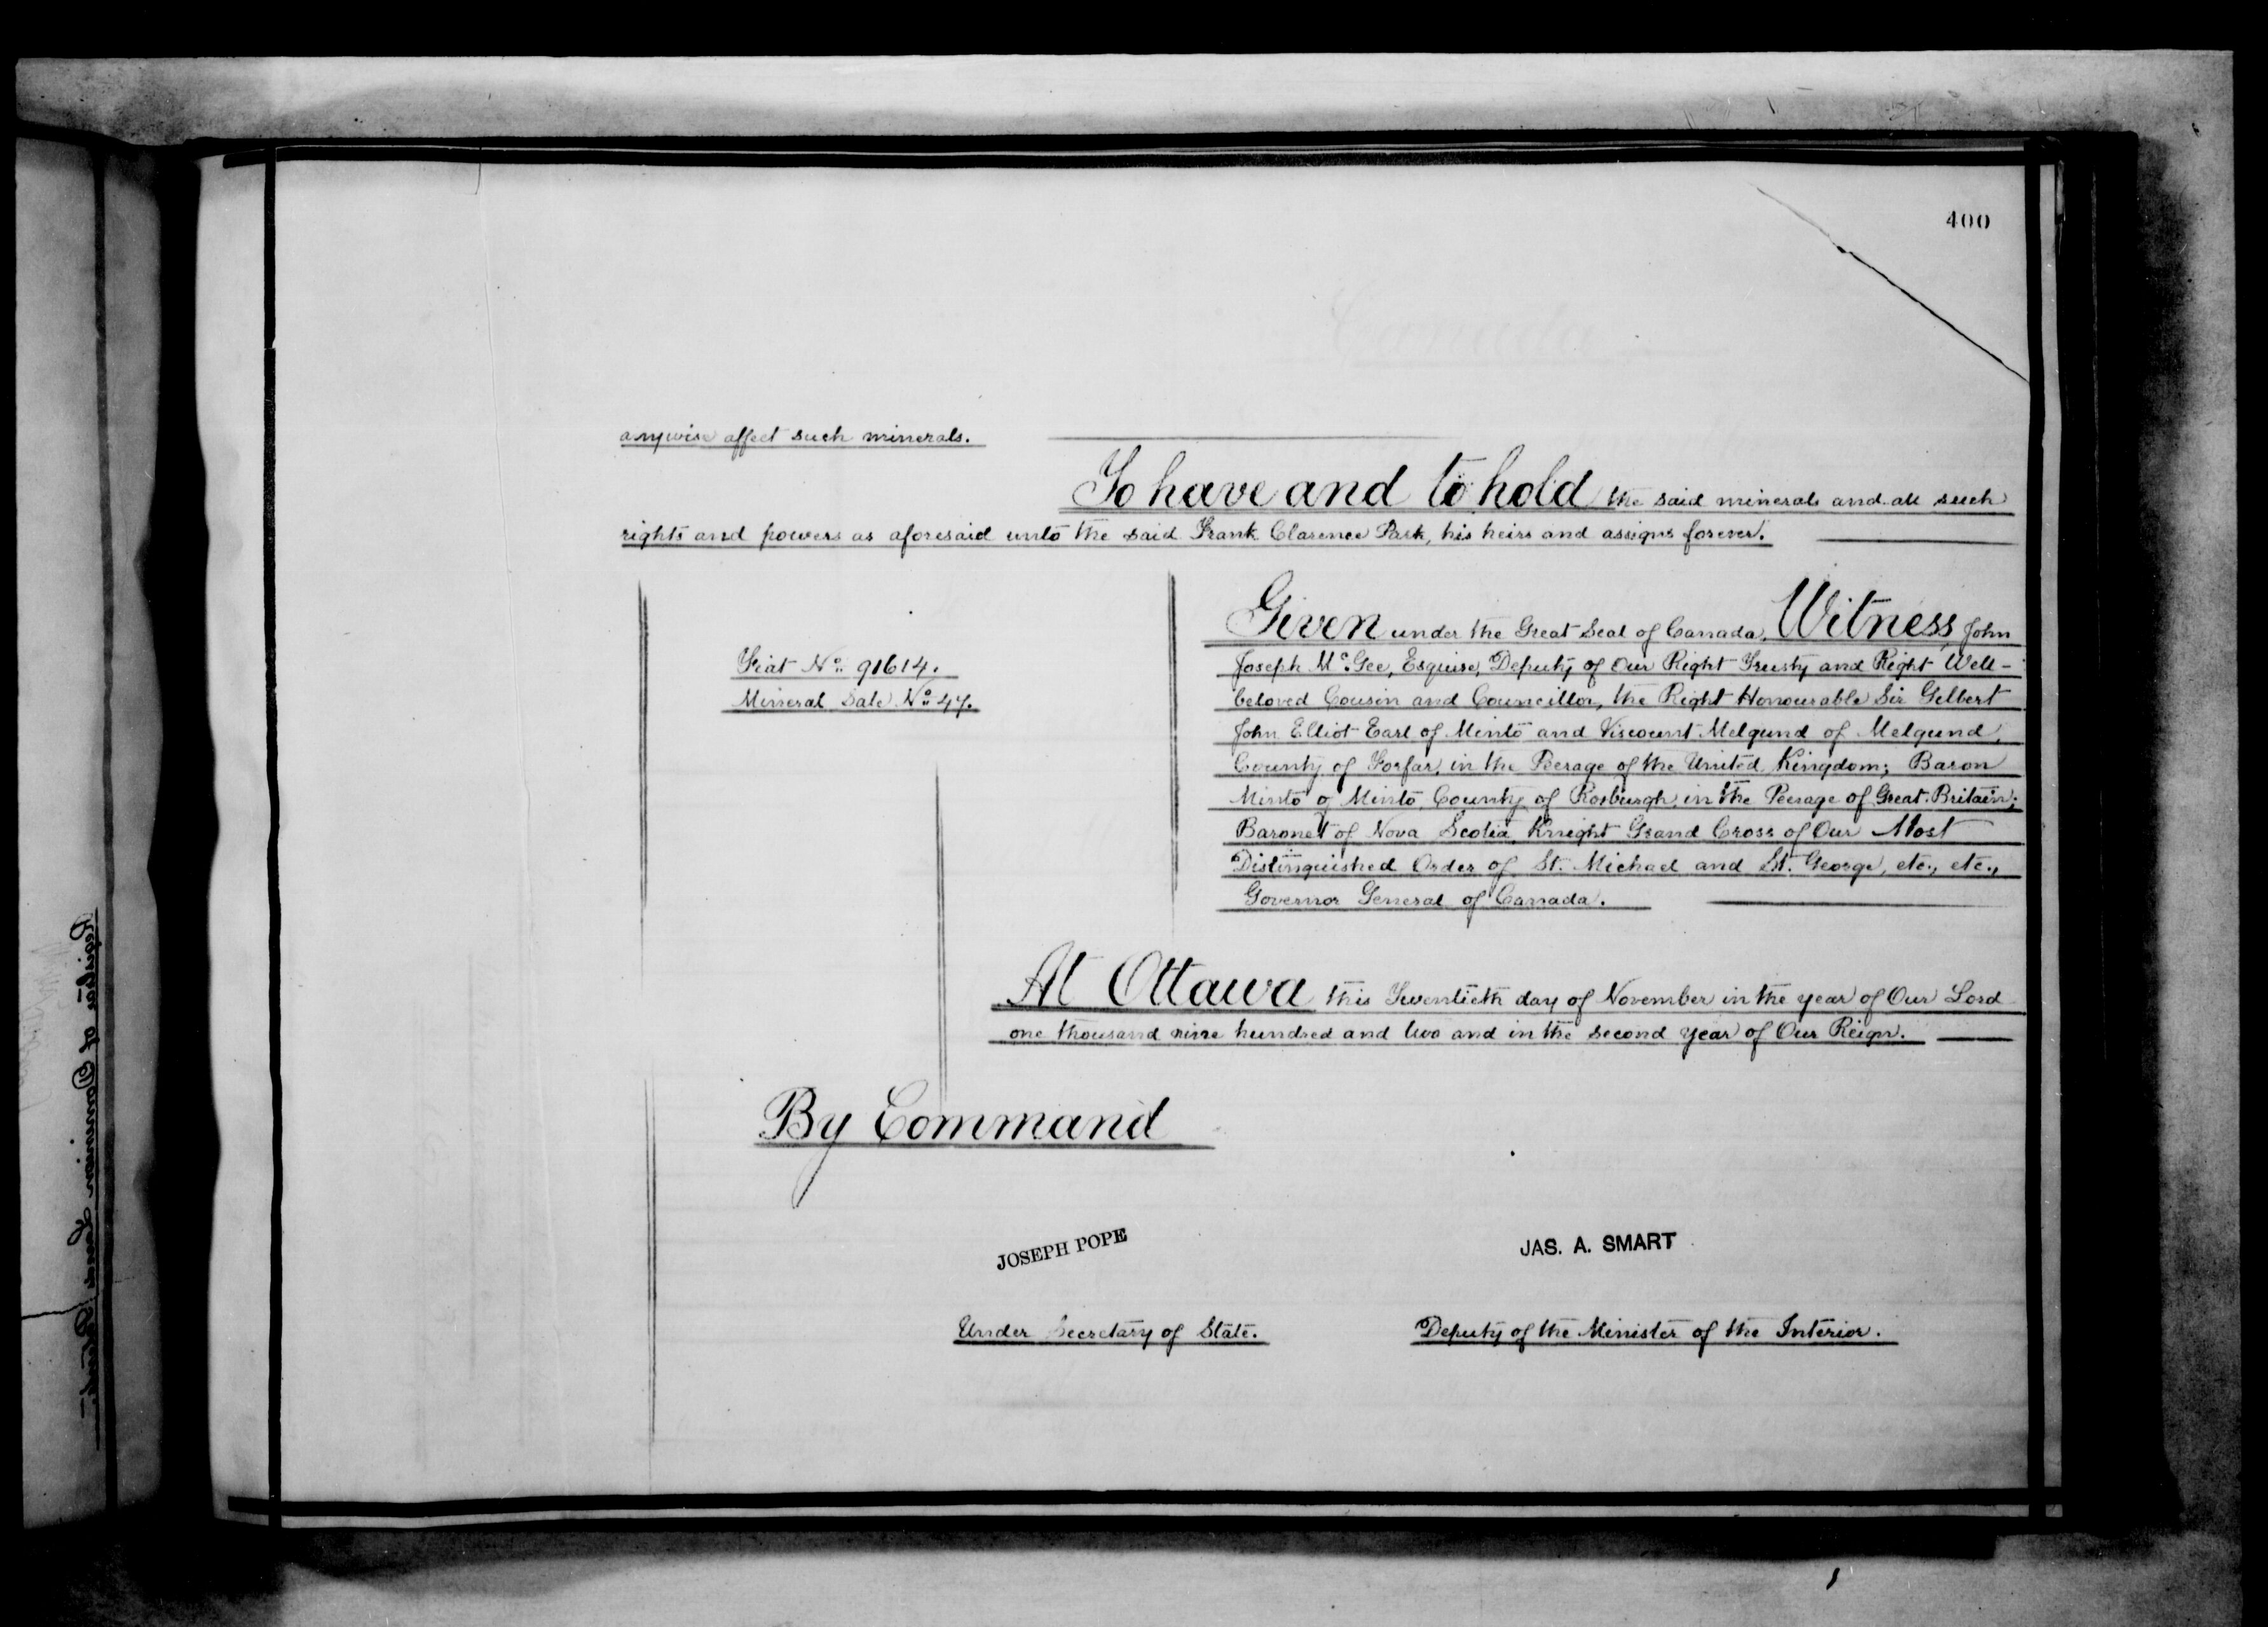 400
anywise affect such minerals.
To have and to hold the said minerals and all such
rights and powers as aforesaid unto the said Frank Clarence Park, his heirs and assigns forever.
Fiat No. 91614.
Mineral Sale No. 47.
Given under the Great Seal of Canada, Witness, John
Joseph McGee, Esquire, Deputy of Our Right Trusty and Right Well-
beloved Cousin and Councillor, the Right Honourable Sir Gilbert
John Elliot Earl of Minto and Viscount Melgund of Melgund,
County of Forfar, in the Peerage of the United Kingdom; Baron
Minto of Minto, County of Roxburgh, in the Peerage of Great Britain;
Baronet of Nova Scotia, Knight Grand Cross of Our Most
Distinguished Order of St. Michael and St. George, etc., etc.,
Governor General of Canada.
At Ottawa this Twentieth day of November in the year of Our Lord
one thousand nine hundred and two and in the second year of Our Reign.
By Command
JOSEPH POPE
JAS. A. SMART
Under Secretary of State.
Deputy of the Minister of the Interior.
Canada
Registrar of Dominion Lands Patents.